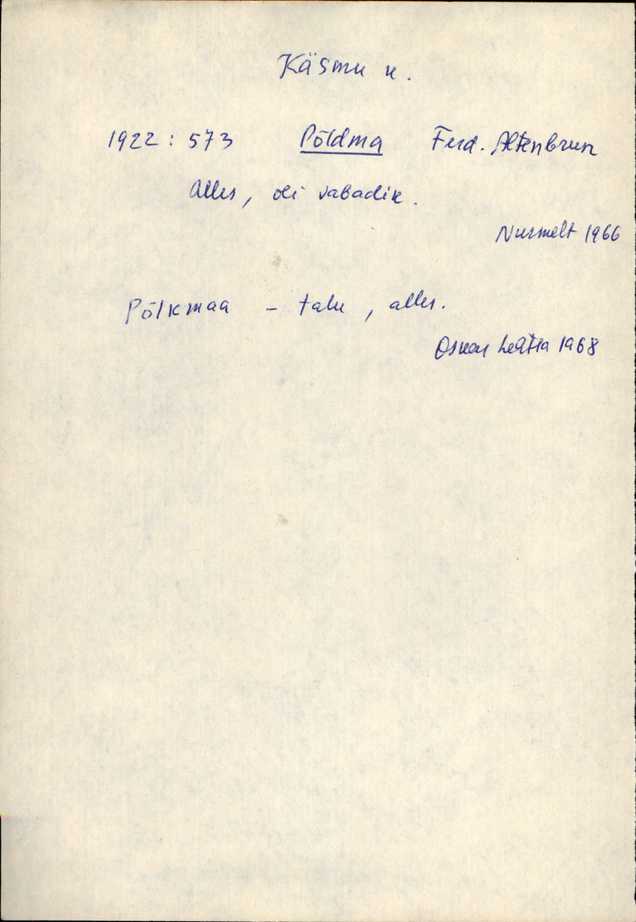 Käsmu k.
1922: 573 Põldma Ferd. Altenbrun
Alles, oli vabadik.
Nurmelt 1966
Põlkmaa - talu, alles.
Oskar 1968